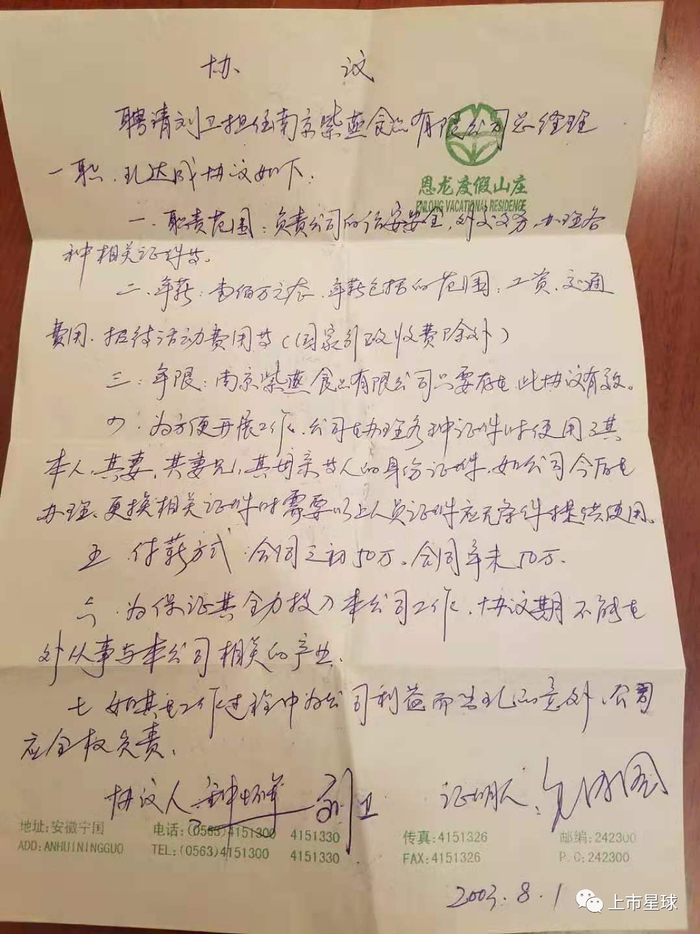 协 议
聘请刘卫担任南京紫燕食品有限公司总经理
恩龙度假山庄
ENLONG VACATIONAL RESIDENCE
一职,现达成协议如下:
一、职责范围:负责公司的治安安全,外交义务,办理各
种相关证件等。
二、年薪:壹佰万元整,年薪包括的范围:工资、交通
费用、招待活动费用等(国家行政收费除外)
三、年限:南京紫燕食品有限公司只要存在,此协议有效。
四、为方便开展工作,公司在办理各种证件时使用了其
本人、其妻、其妻兄、其母亲等人的身份证件,如公司今后在
办理、更换相关证件时需要以上人员证件应无条件提供使用。
五、付薪方式:合同之初50万,合同年末50万。
六、为保证其全力投入本公司工作,协议期不能在
外从事与本公司相关的产业。
七、如其在工作过程中为公司利益而出现的意外,公司
应全权负责。
协议人 刘卫 证明人:
地址:安徽宁国 电话:(0563)4151300 4151330 传真:4151326 邮编:242300
ADD:ANHUININGGUO TEL:(0563)4151300 4151330 FAX:4151326 P.C:242300
2003.8.1
上市星球